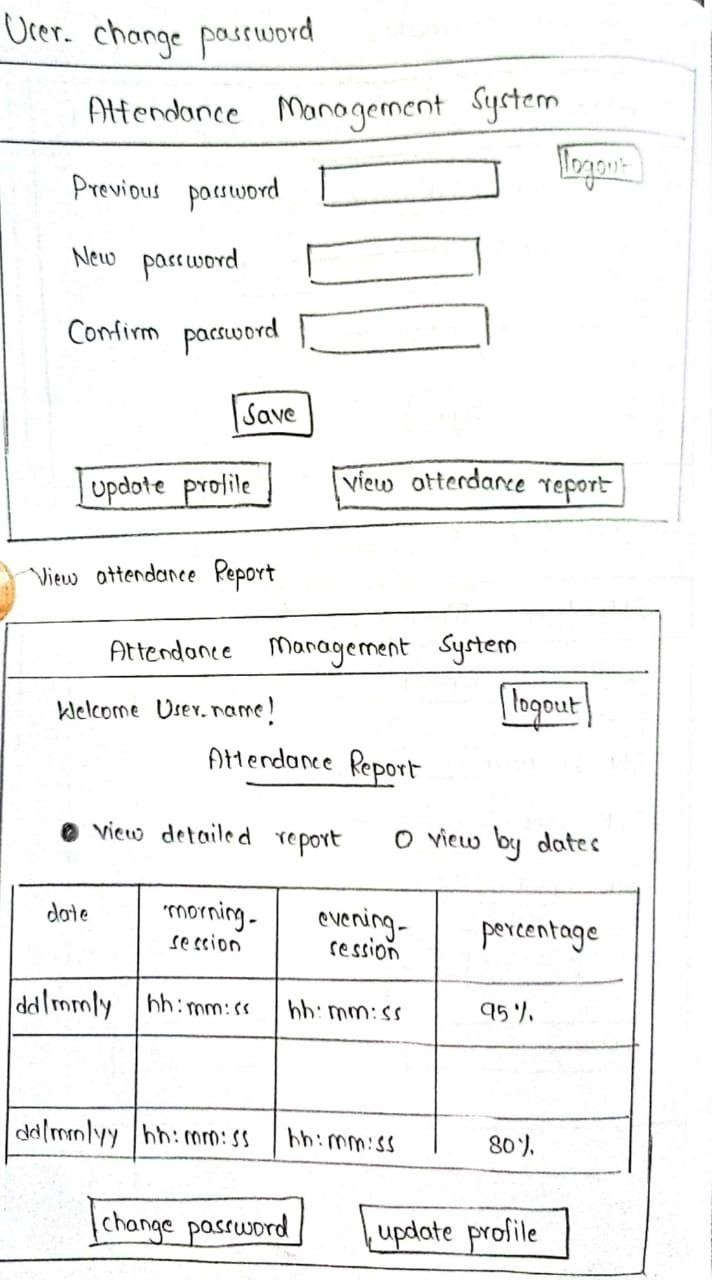 User. change password
Attendance Management System
logout
Previous password
New password
Confirm password
Save
update profile
view attendance report
View attendance Report
Attendance Management System
Welcome User.name!
logout
Attendance Report
view detailed report
view by dates
date
morning-
session
evening-
session
percentage
dd/mm/y
hh:mm:ss
hh:mm:ss
95%
dd/mm/yy
hh:mm:ss
hh:mm:ss
80%
change password
update profile